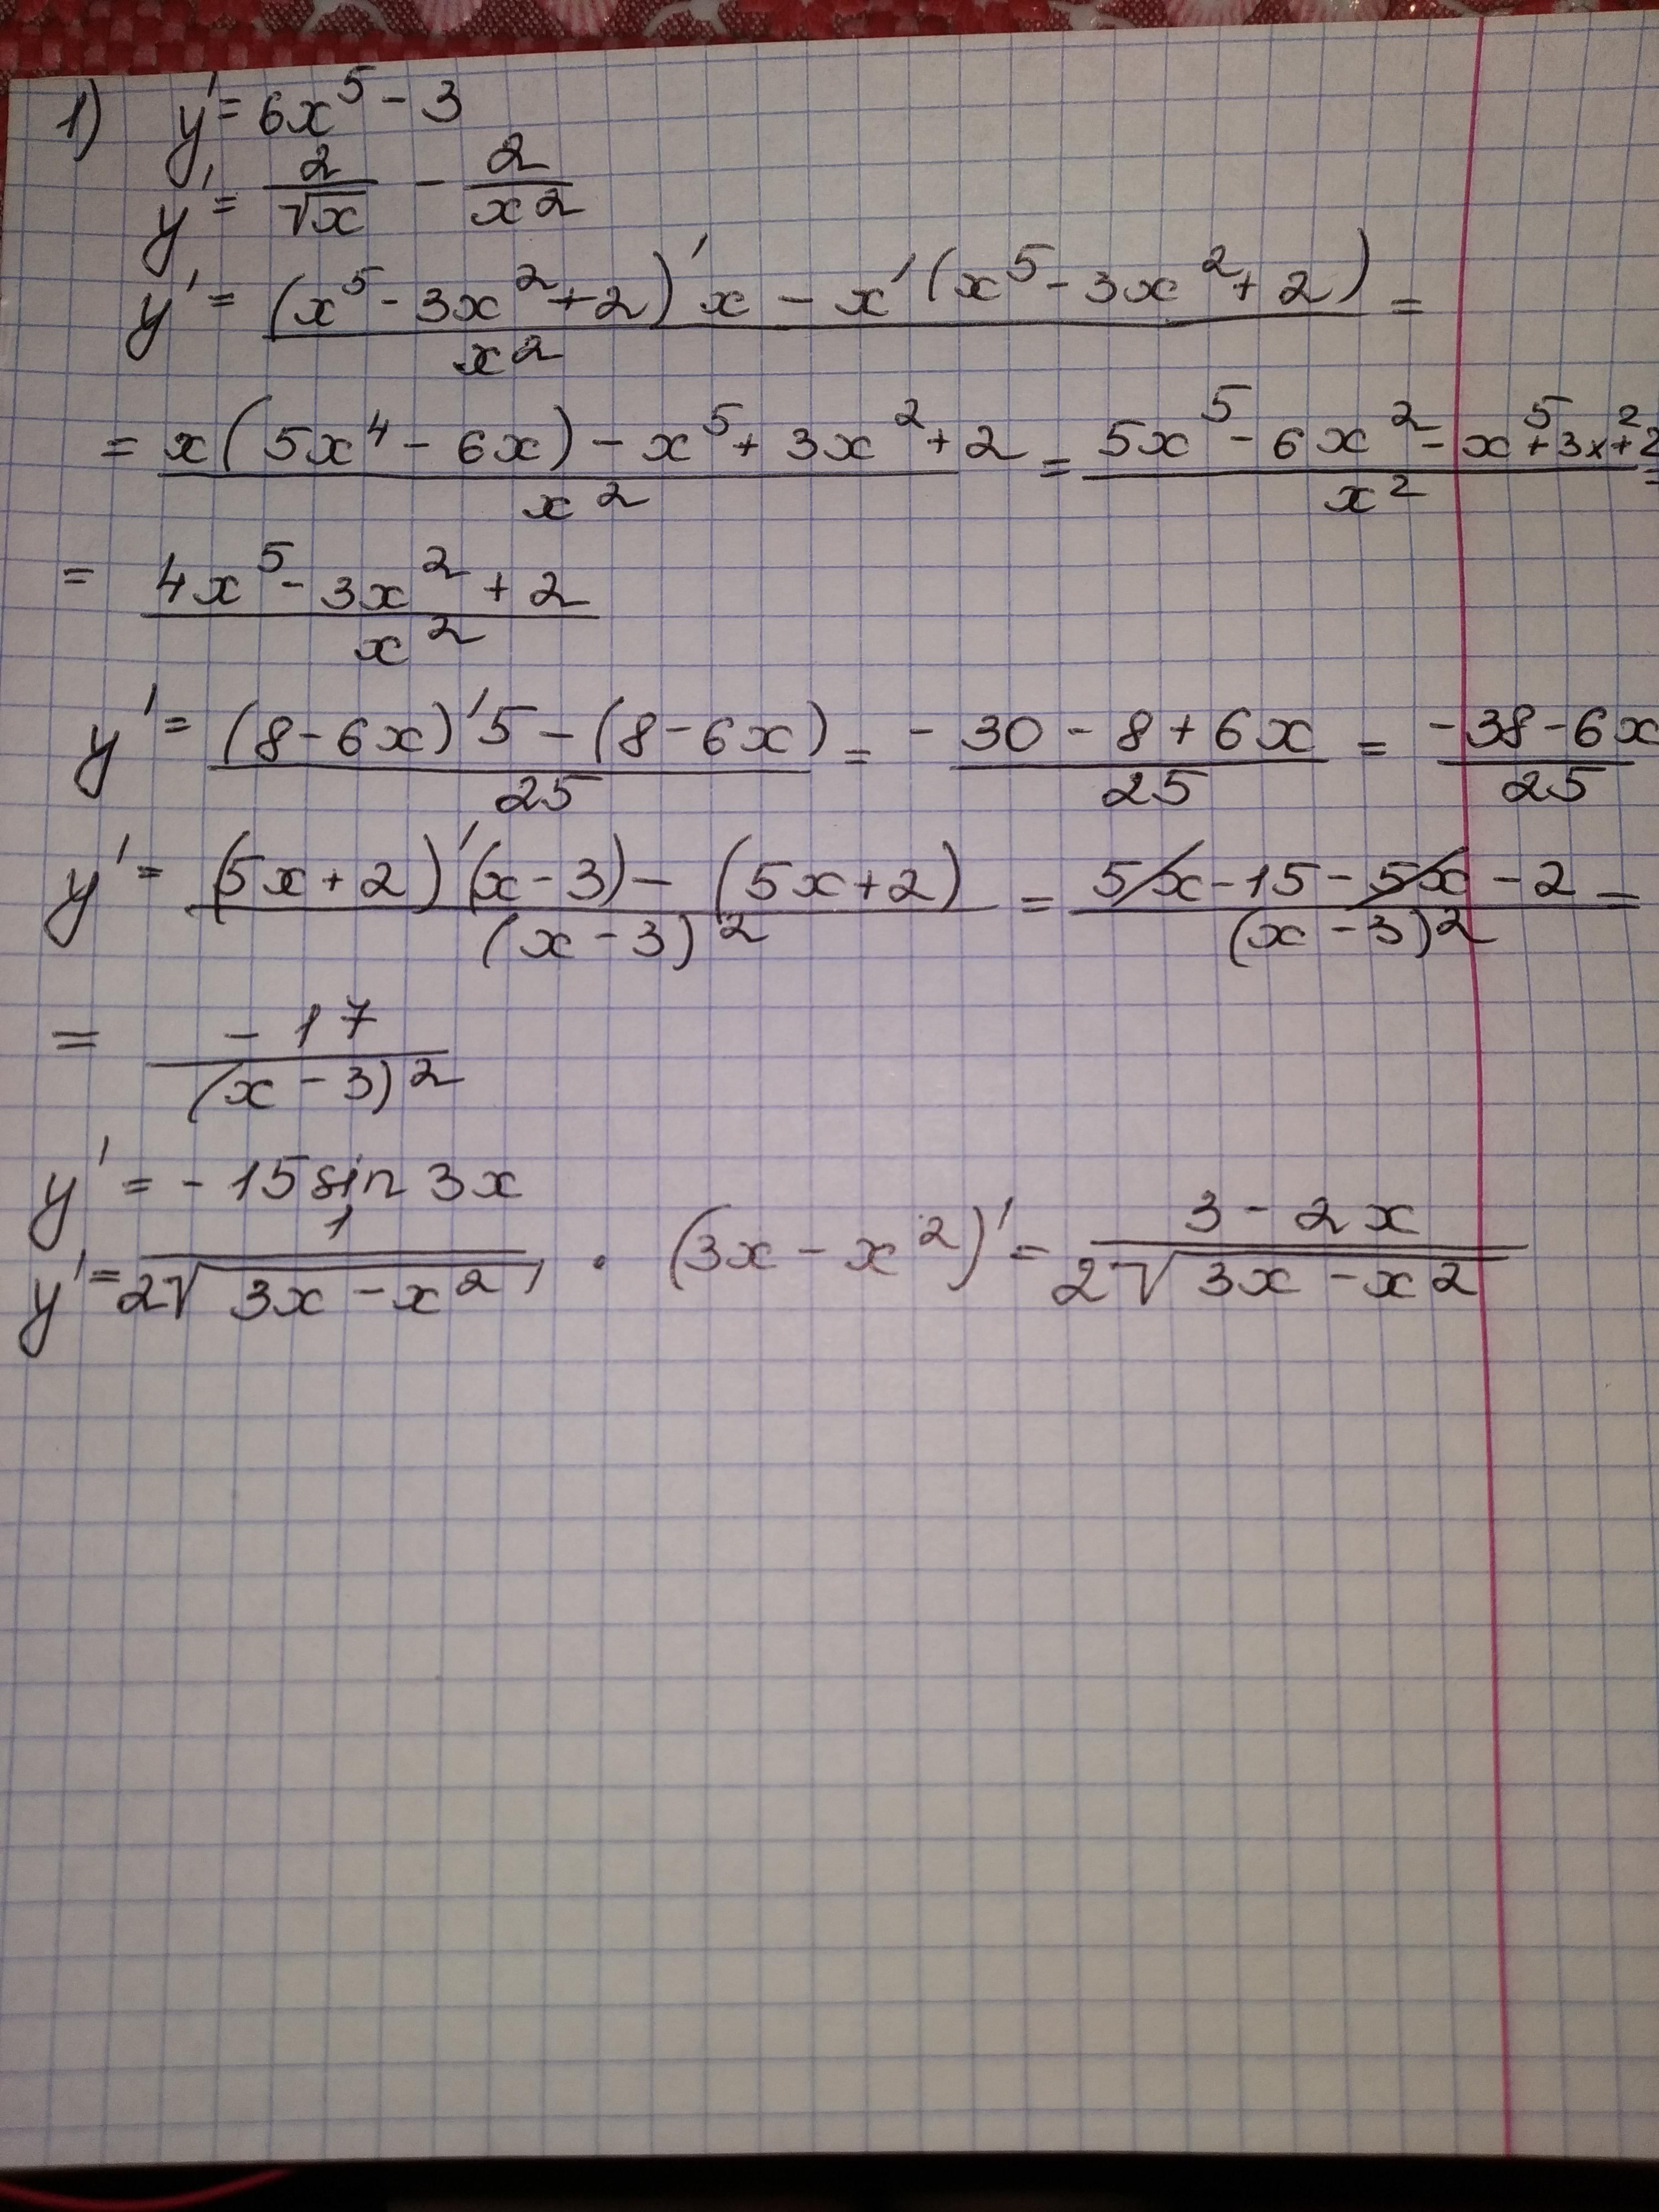 1) y' = 6x⁵ - 3
y' = 2/√x - 2/x²
y' = ((x⁵ - 3x² + 2)'x - x'(x⁵ - 3x² + 2))/x² =
= (x(5x⁴ - 6x) - x⁵ + 3x² + 2)/x² = (5x⁵ - 6x² - x⁵ + 3x² + 2)/x² =
= (4x⁵ - 3x² + 2)/x²
y' = ((8 - 6x)'5 - (8 - 6x))/25 = (-30 - 8 + 6x)/25 = (-38 - 6x)/25
y' = ((5x + 2)'(x - 3) - (5x + 2))/(x - 3)² = (5x - 15 - 5x - 2)/(x - 3)² =
= -17/(x - 3)²
y' = -15 sin 3x
y' = 1/(2√(3x - x²)) · (3x - x²)' = (3 - 2x)/(2√(3x - x²))